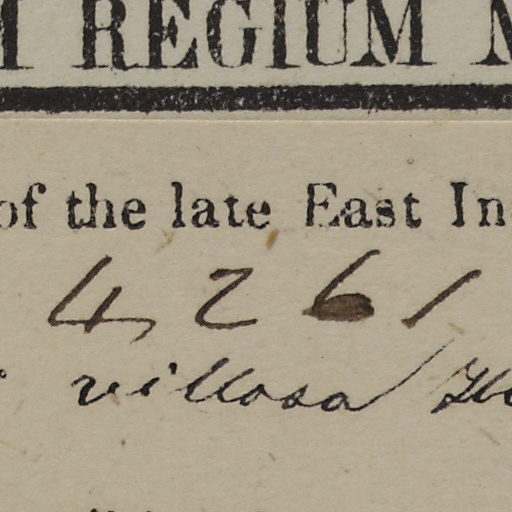 REGIUM
of the late East In
4261
villosa